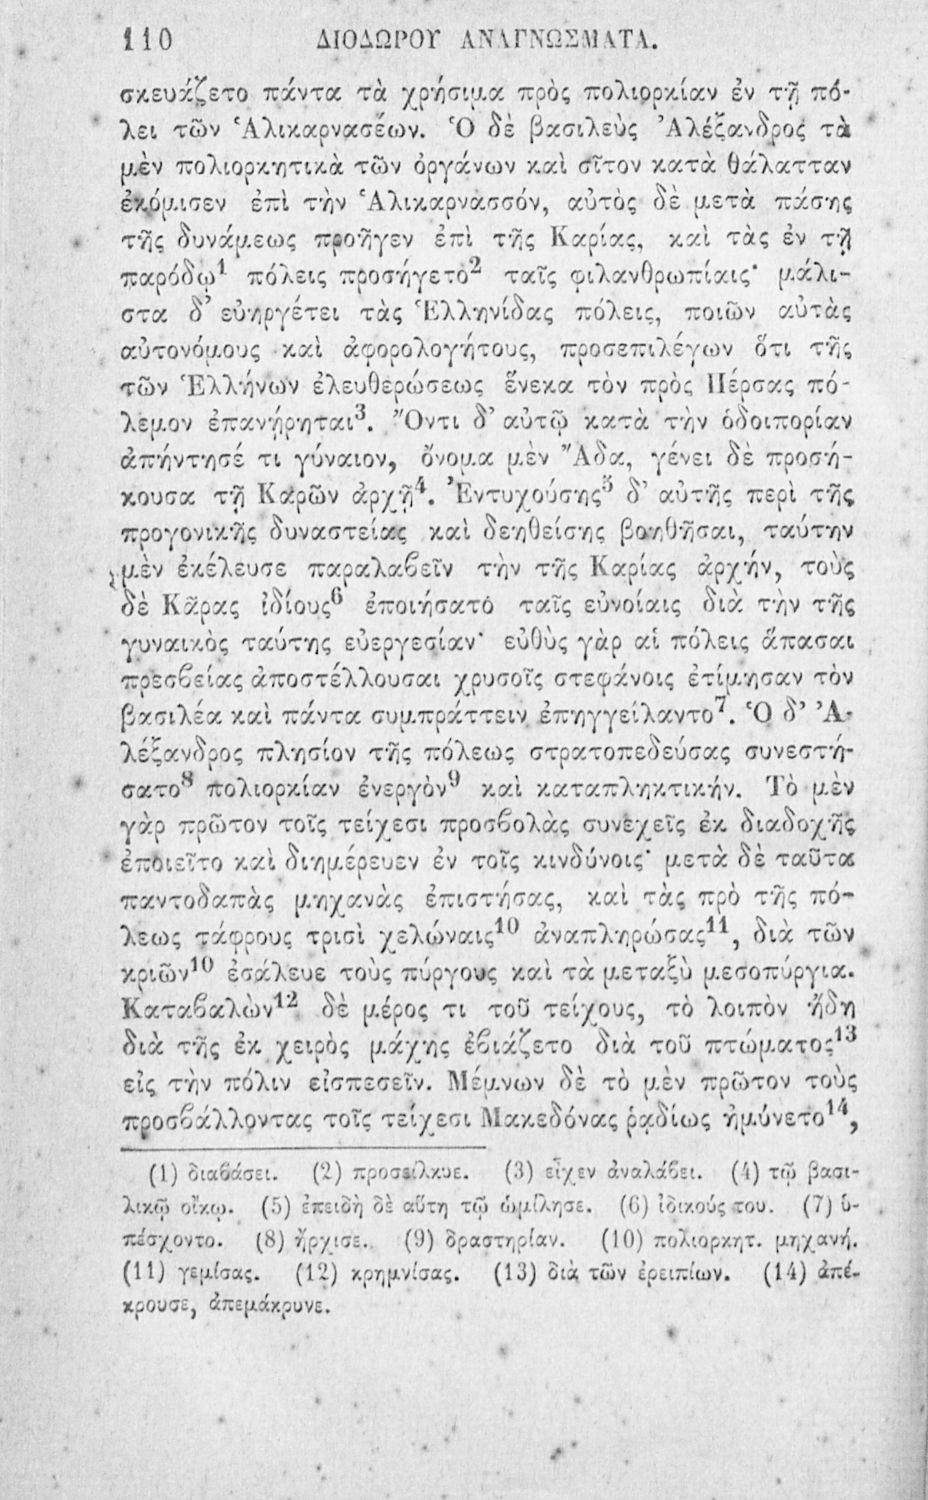 110 ΔΙΟΔΩΡΟΥ ΑΝΑΓΝΩΣΜΑΤΑ.
σκευάζετο πάντα τὰ χρήσιμα πρὸς πολιορκίαν ἐν τῇ πό-
λει τῶν Ἁλικαρνασέων. Ὁ δὲ βασιλεὺς Ἀλέξανδρος τὰ
μὲν πολιορκητικὰ τῶν ὀργάνων καὶ σῖτον κατὰ θάλατταν
ἐκόμισεν ἐπὶ τὴν Ἁλικαρνασσόν, αὐτὸς δὲ μετὰ πάσης
τῆς δυνάμεως προῆγεν ἐπὶ τῆς Καρίας, καὶ τὰς ἐν τῇ
παρόδῳ¹ πόλεις προσήγετο² ταῖς φιλανθρωπίαις· μάλι-
στα δ’ εὐηργέτει τὰς Ἑλληνίδας πόλεις, ποιῶν αὐτὰς
αὐτονόμους καὶ ἀφορολογήτους, προσεπιλέγων ὅτι τῆς
τῶν Ἑλλήνων ἐλευθερώσεως ἕνεκα τὸν πρὸς Πέρσας πό-
λεμον ἐπανῄρηται³. Ὄντι δ’ αὐτῷ κατὰ τὴν ὁδοιπορίαν
ἀπήντησέ τι γύναιον, ὄνομα μὲν Ἄδα, γένει δὲ προσή-
κουσα τῇ Καρῶν ἀρχῇ⁴. Ἐντυχούσης⁵ δ’ αὐτῆς περὶ τῆς
προγονικῆς δυναστείας καὶ δεηθείσης βοηθῆσαι, ταύτην
μὲν ἐκέλευσε παραλαβεῖν τὴν τῆς Καρίας ἀρχήν, τοὺς
δὲ Κᾶρας ἰδίους⁶ ἐποιήσατο ταῖς εὐνοίαις διὰ τὴν τῆς
γυναικὸς ταύτης εὐεργεσίαν· εὐθὺς γὰρ αἱ πόλεις ἅπασαι
πρεσβείας ἀποστέλλουσαι χρυσοῖς στεφάνοις ἐτίμησαν τὸν
βασιλέα καὶ πάντα συμπράττειν ἐπηγγείλαντο⁷. Ὁ δ’ Ἀ-
λέξανδρος πλησίον τῆς πόλεως στρατοπεδεύσας συνεστή-
σατο⁸ πολιορκίαν ἐνεργὸν⁹ καὶ καταπληκτικήν. Τὸ μὲν
γὰρ πρῶτον τοῖς τείχεσι προσβολὰς συνεχεῖς ἐκ διαδοχῆς
ἐποιεῖτο καὶ διημέρευεν ἐν τοῖς κινδύνοις· μετὰ δὲ ταῦτα
παντοδαπὰς μηχανὰς ἐπιστήσας, καὶ τὰς πρὸ τῆς πό-
λεως τάφρους τρισὶ χελώναις¹⁰ ἀναπληρώσας¹¹, διὰ τῶν
κριῶν¹⁰ ἐσάλευε τοὺς πύργους καὶ τὰ μεταξὺ μεσοπύργια.
Καταβαλὼν¹² δὲ μέρος τι τοῦ τείχους, τὸ λοιπὸν ἤδη
διὰ τῆς ἐκ χειρὸς μάχης ἐβιάζετο διὰ τοῦ πτώματος¹³
εἰς τὴν πόλιν εἰσπεσεῖν. Μέμνων δὲ τὸ μὲν πρῶτον τοὺς
προσβάλλοντας τοῖς τείχεσι Μακεδόνας ῥᾳδίως ἠμύνετο¹⁴,
(1) διαβάσει. (2) προσείλκυε. (3) εἶχεν ἀναλάβει. (4) τῷ βασι-
λικῷ οἴκῳ. (5) ἐπειδὴ δὲ αὕτη τῷ ὡμίλησε. (6) ἰδικούς του. (7) ὑ-
πέσχοντο. (8) ἤρχισε. (9) δραστηρίαν. (10) πολιορκητ. μηχανή.
(11) γεμίσας. (12) κρημνίσας. (13) διὰ τῶν ἐρειπίων. (14) ἀπέ-
κρουσε, ἀπεμάκρυνε.